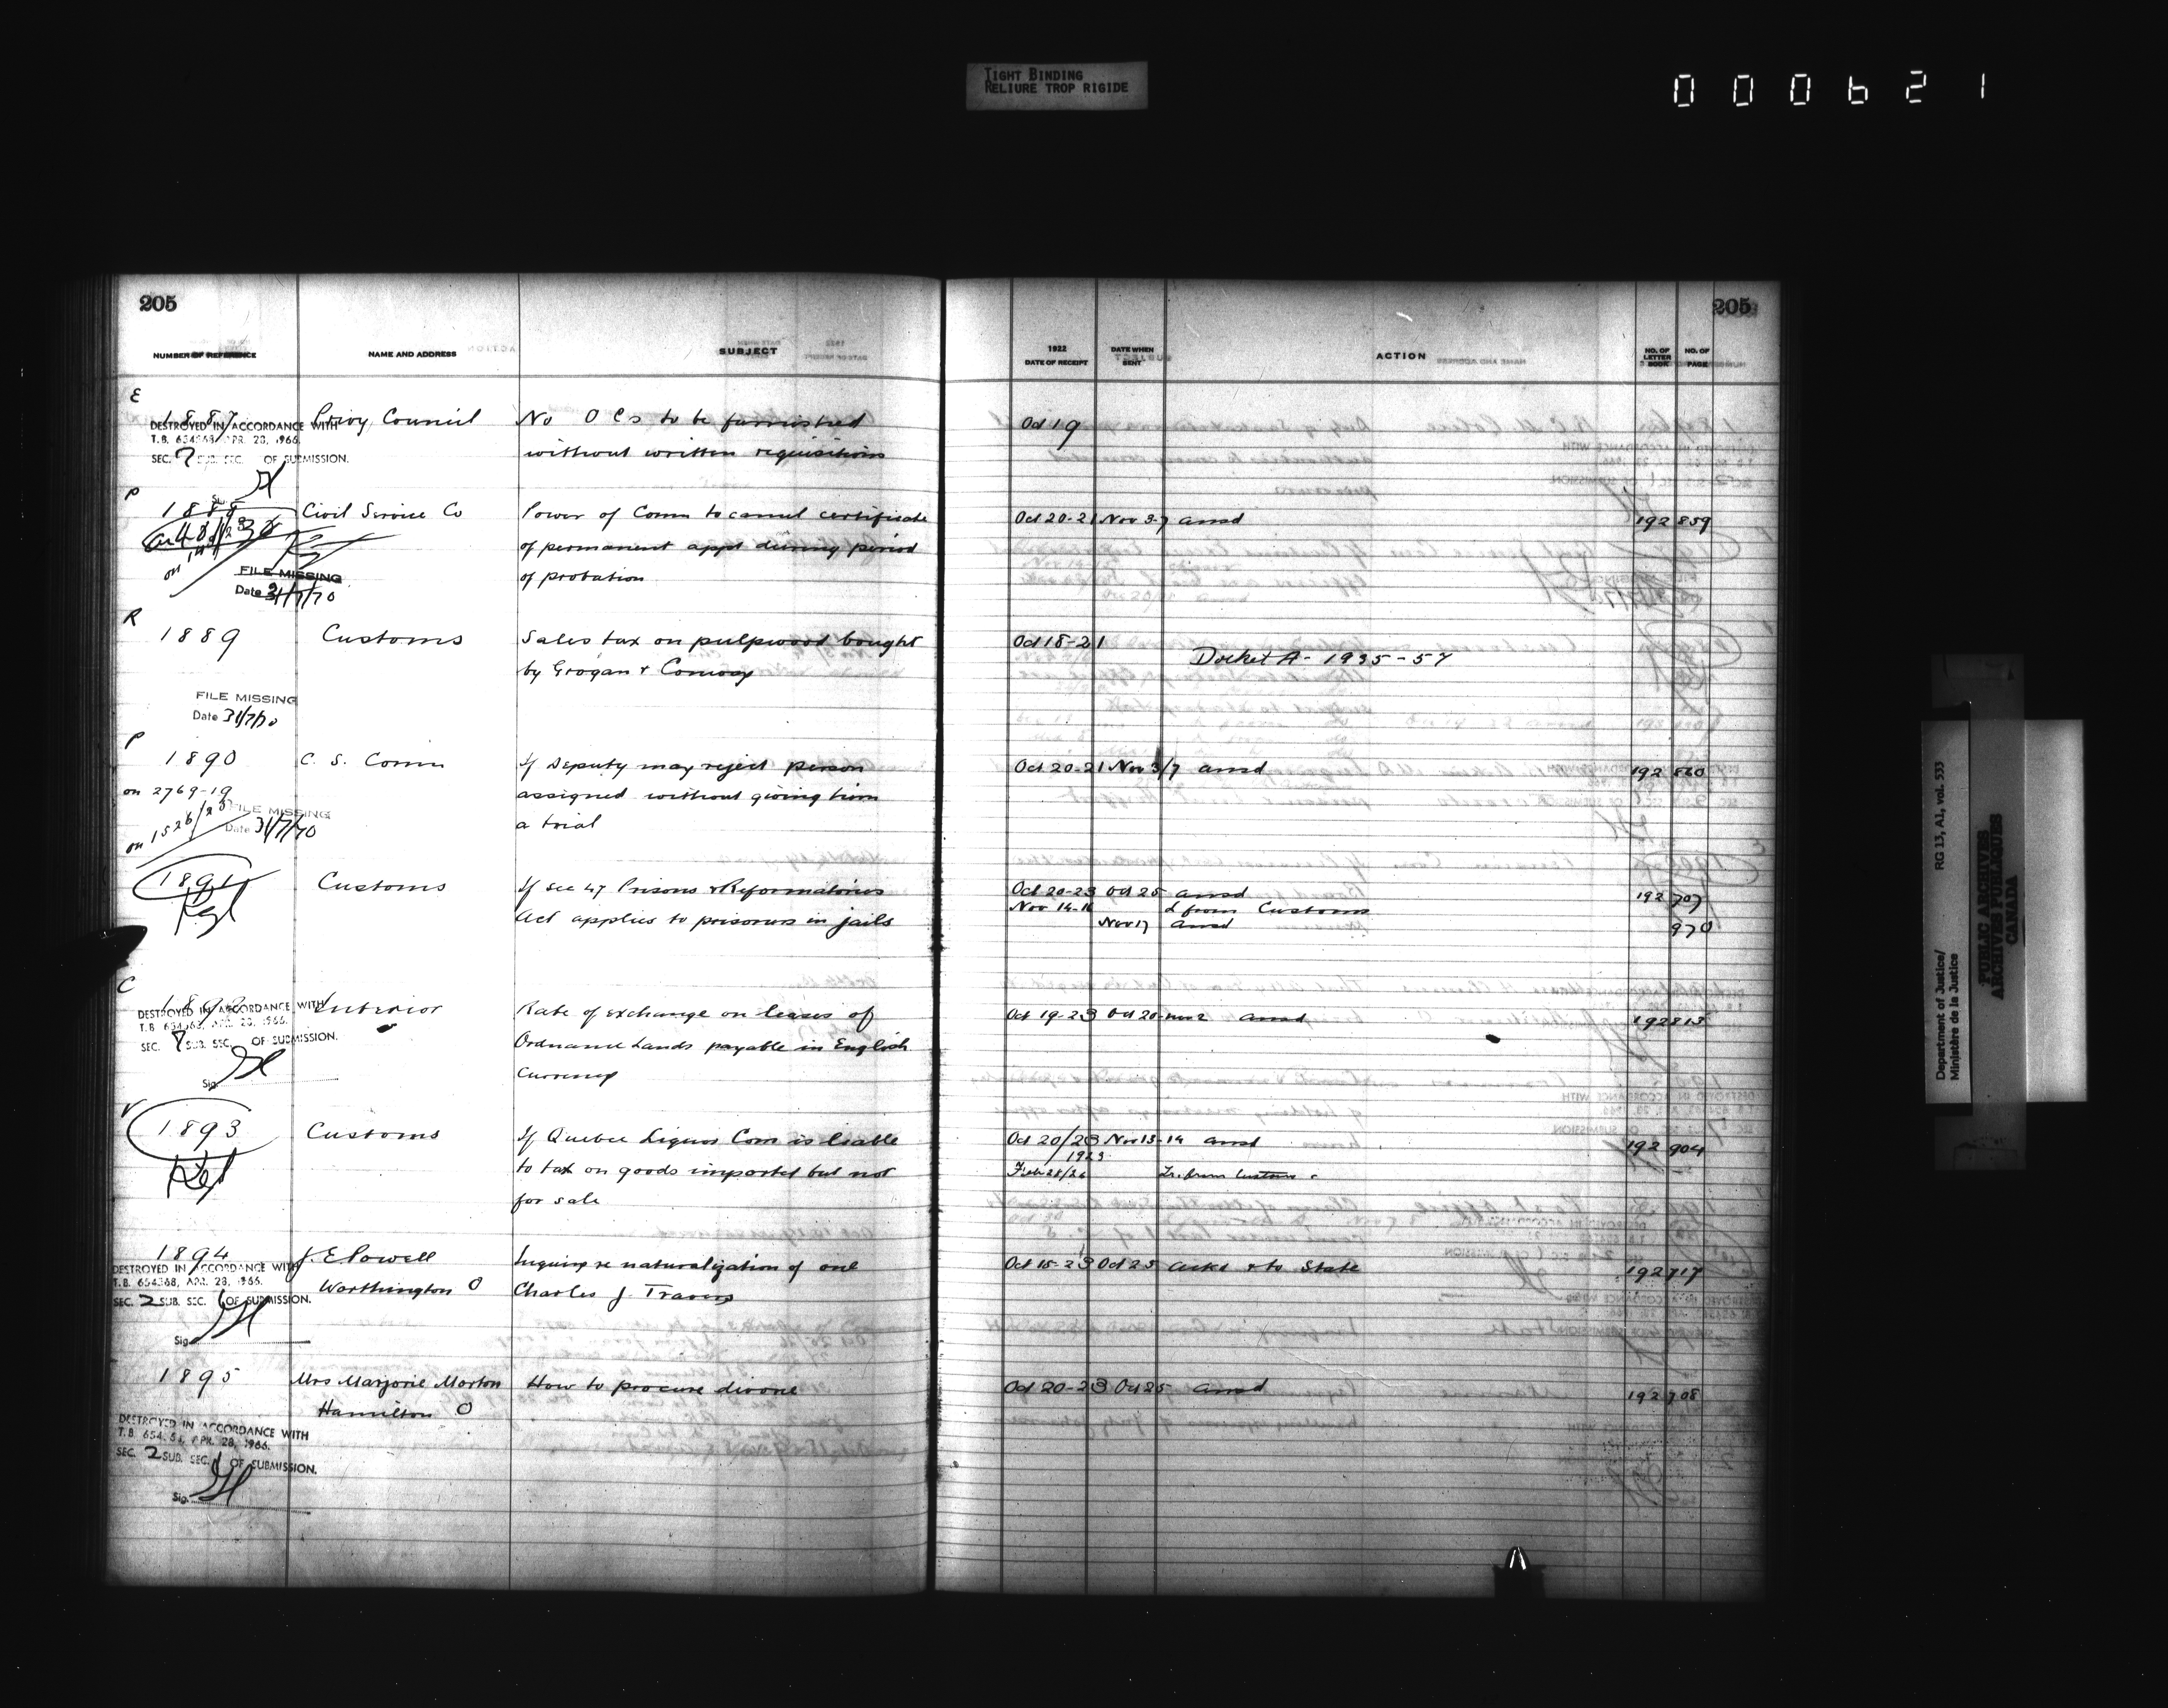 TIGHT BINDING
RELIURE TROP RIGIDE
000621
205
NUMBER OF REFERENCE NAME AND ADDRESS SUBJECT
E
1887 Privy Council No O Cs to be furnished
without written requisitions
DESTROYED IN ACCORDANCE WITH
T.B. 654368, APR. 28, 1966.
SEC. 7 SUB. SEC. OF SUBMISSION.
P
1888 Civil Service Co Power of Comm to cancel certificate
of permanent appt during period
of probation
FILE MISSING
Date 31/7/70
R
1889 Customs Sales tax on pulpwood bought
by Grogan & Conway
FILE MISSING
Date 31/7/70
P
1890 C. S. Comm If Deputy may reject person
on 2769-19 assigned without giving him
a trial
on 1526/23
FILE MISSING
Date 31/7/70
1891 Customs If sec 47 Prisons & Reformatories
Act applies to prisoners in jails
C
1892 Interior Rate of exchange on leases of
Ordnance Lands payable in English
Currency
DESTROYED IN ACCORDANCE WITH
T.B. 654368, APR. 28, 1966.
SEC. 7 SUB. SEC. OF SUBMISSION.
Sig.
V
1893 Customs If Quebec Liquor Com is liable
to tax on goods imported but not
for sale
1894 J. E. Powell Inquiry re naturalization of one
Worthington O Charles J. Travers
DESTROYED IN ACCORDANCE WITH
T.B. 654368, APR. 28, 1966.
SEC. 2 SUB. SEC. 1 OF SUBMISSION.
Sig.
1895 Mrs Marjorie Morton How to procure divorce
Hamilton O
DESTROYED IN ACCORDANCE WITH
T.B. 654368, APR. 28, 1966.
SEC. 2 SUB. SEC. 1 OF SUBMISSION.
Sig.
205
1922
DATE OF RECEIPT DATE WHEN SENT ACTION NO. OF LETTER BOOK NO. OF PAGE
Oct 19
Oct 20-21 Nov 3-7 ansd 192 859
Oct 18-21
Docket A- 1935-57
Oct 20-21 Nov 3/7 ansd 192 860
Oct 20-23 Oct 25 ansd 192 707
Nov 14-16 L from Customs
Nov 17 ansd 970
Oct 19-23 Oct 20-Nov 2 ansd 192 815
Oct 20/23 Nov 13-14 ansd 192 904
1923
Feb 28/26 Lr. from Customs
Oct 15-23 Oct 25 ackd & to State 192 717
Oct 20-23 Oct 25 ansd 192 708
Department of Justice/
Ministère de la Justice
RG 13, A1, vol. 533
PUBLIC ARCHIVES
ARCHIVES PUBLIQUES
CANADA